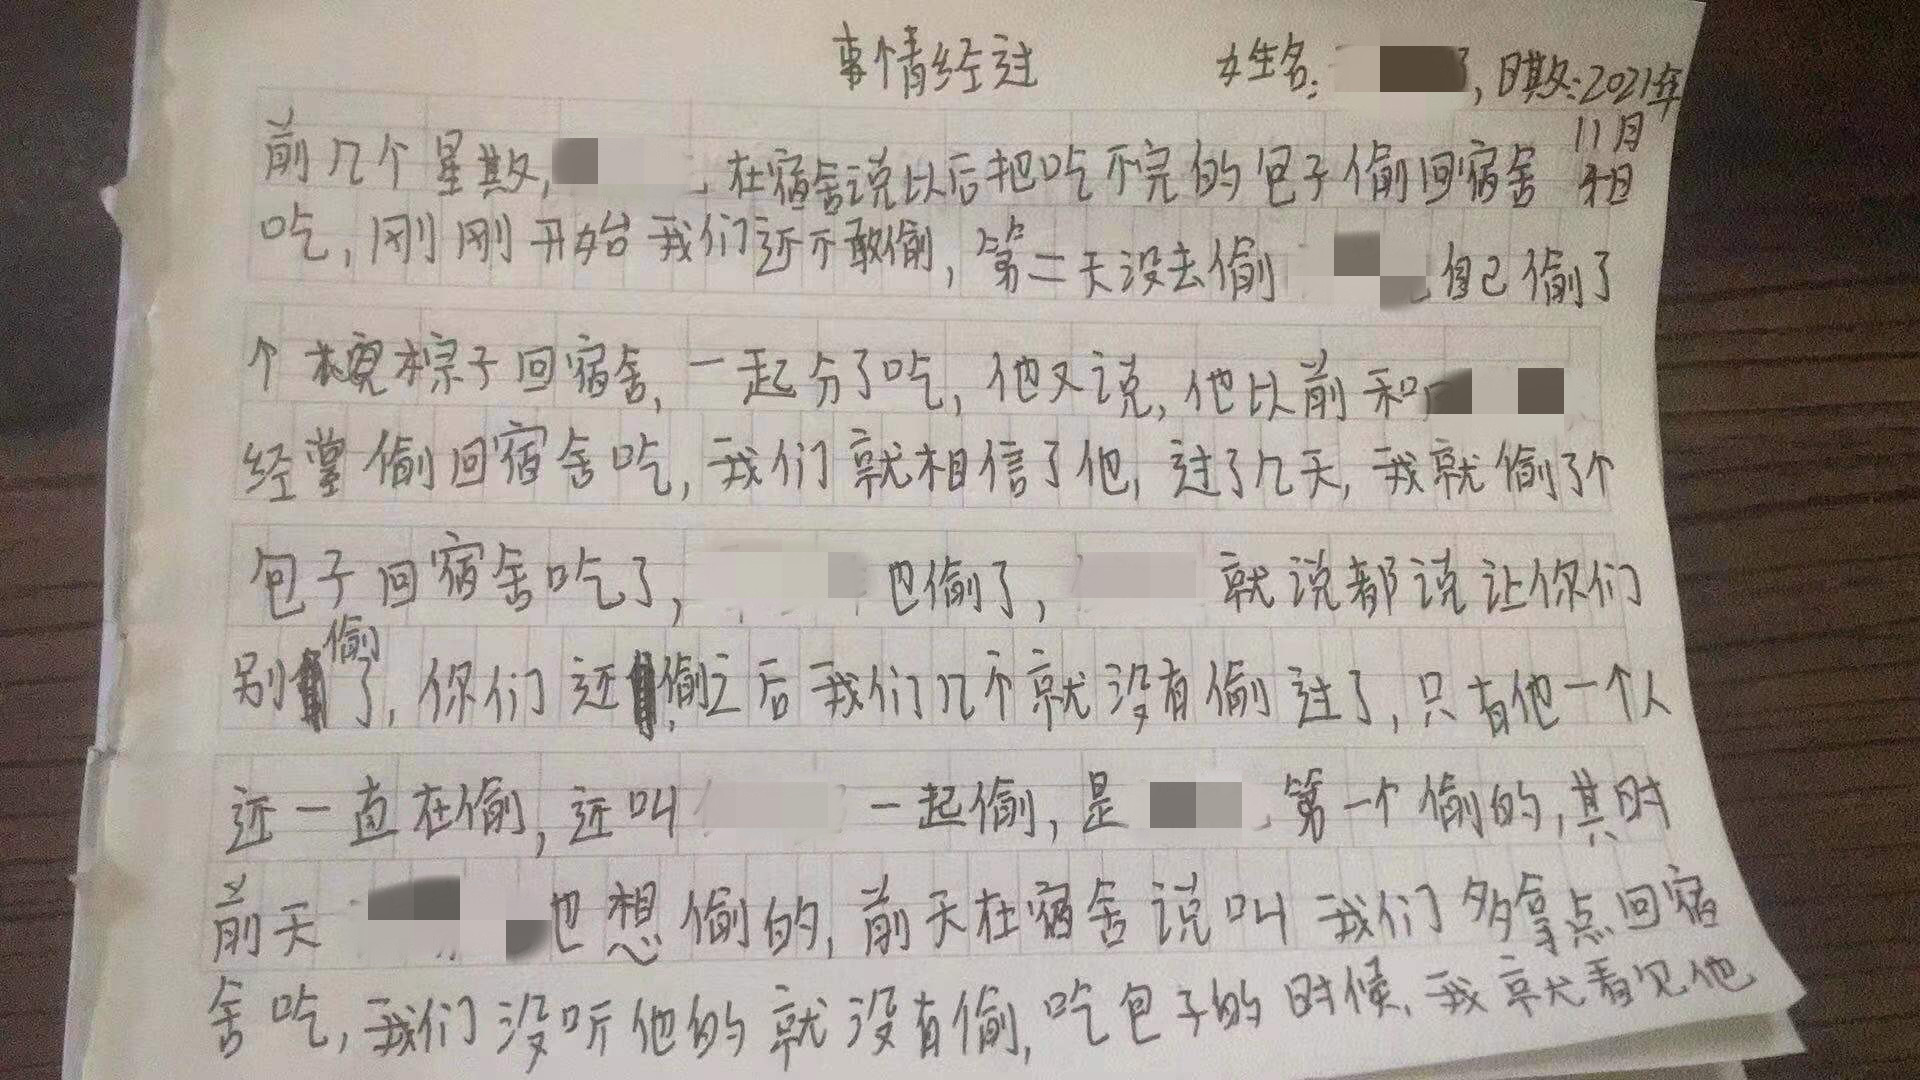 事情经过 姓名: , 日期:2021年
11月
前几个星期, , 在宿舍说以后把吃不完的包子偷回宿舍
吃, 刚刚开始我们还不敢偷, 第二天没去偷 自己偷了
个 粽子回宿舍, 一起分了吃, 他又说, 他以前和
经常偷回宿舍吃, 我们就相信了他, 过了几天, 我就偷了个
包子回宿舍吃了, 也偷了, 就说都说让你们
别偷了, 你们还偷之后我们几个就没有偷过了, 只有他一个人
还一直在偷, 还叫 一起偷, 是 第一个偷的, 其时
前天 也想偷的, 前天在宿舍说叫我们多拿点回宿
舍吃, 我们没听他的就没有偷, 吃包子的时候, 我就看见他